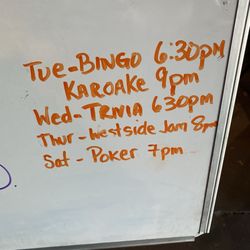 Tue-BINGO 6:30pm
KAROAKE 9pm
Wed-TRIVIA 630pm
Thur-Westside Jam 8pm
Sat - POKER 7pm